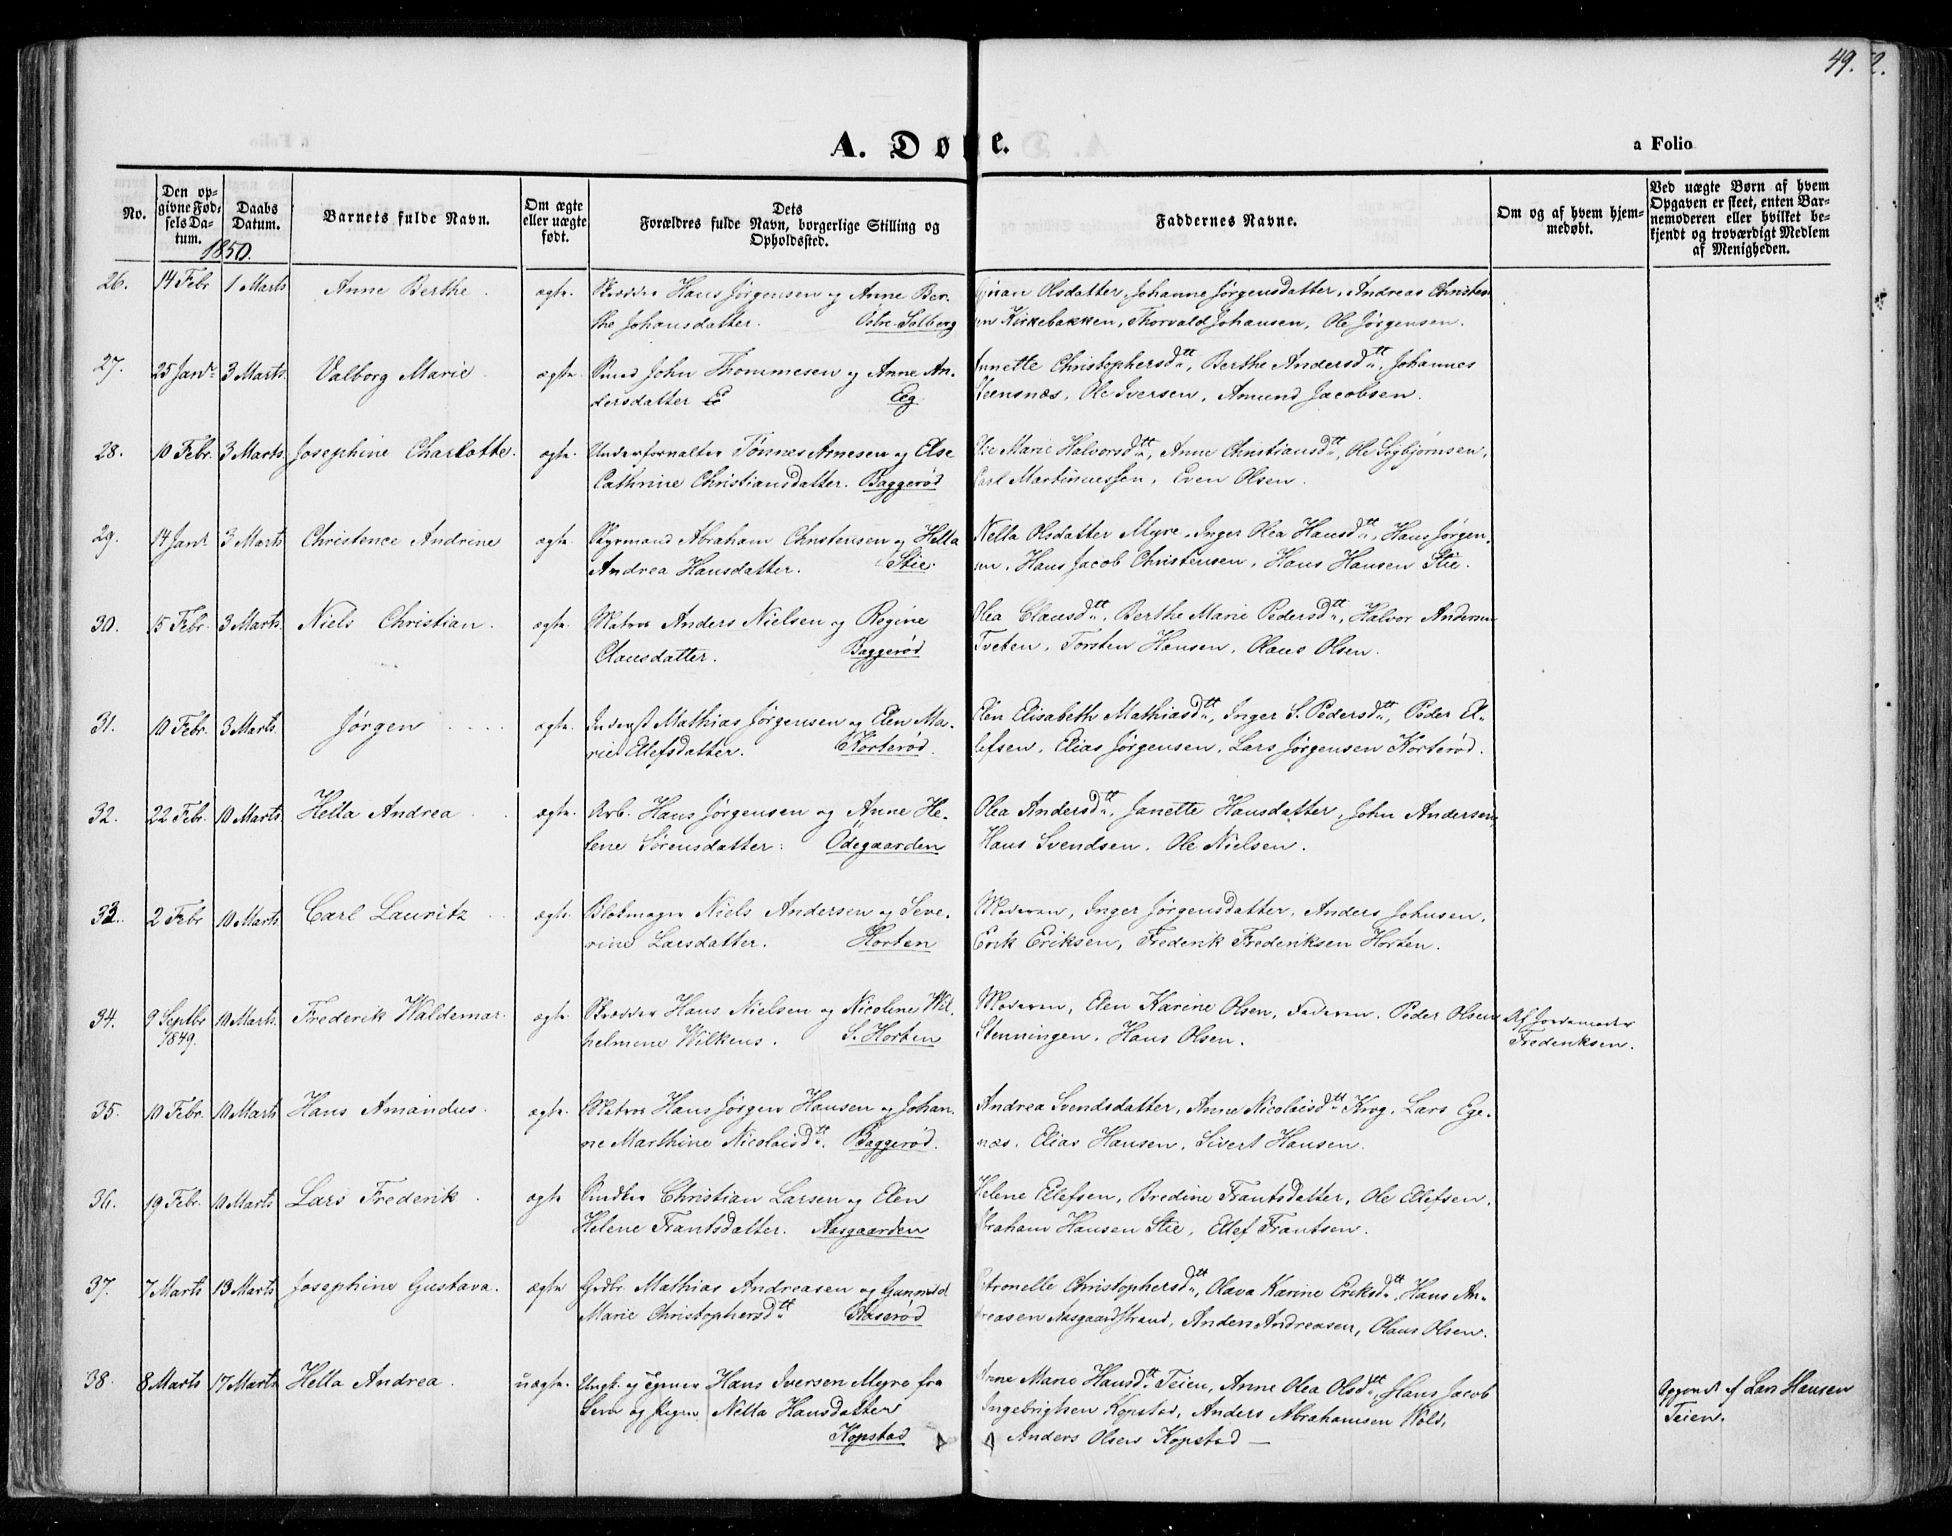 49. 2.
A. Døbte.
a Folio
No.
Den op-
givne Fød-
sels Da-
tum.
Daabs
Datum.
Barnets fulde Navn.
Om ægte
eller uægte
født.
Dets
Forældres fulde Navn, borgerlige Stilling og
Opholdssted.
Faddernes Navne.
Om og af hvem hjem-
medøbt.
Ved uægte Børn af hvem
Opgaven er skeet, enten Bar-
nemoderen eller hvilket be-
kjendt og troværdigt Medlem
af Menigheden.
1850.
26. 14 Febr 1 Marts Anne Berthe. ægte. Skrædder Hans Jørgensen og Anne Ber- Olsdatter, Johanne Jørgensdatter, Andreas Christen
the Johansdatter. Østre Solberg Kirkebakken, Thorvald Johansen, Ole Jørgensen.
27. 25 Janr 3 Marts. Valborg Marie. ægte. Smed John Thommesen og Anne An- Annette Christophersdtr, Berthe Andersdtr, Johannes
dersdatter Eeg. Ole Iversen, Amund Jacobsen.
28. 10 Febr. 3 Marts. Josephine Charlotte. ægte. Underfornalter Tønnes Arnesen og Else Else Marie Halvorsdtr, Anne Christiansdtr, Ole Sigbjørnsen,
Cathrine Christiansdatter. Baggerød Carl Martinuessen, Even Olsen.
29. 14 Janr 3 Marts Christence Andrine ægte. Styrmand Abraham Christensen og Hella Nella Olsdatter Myre, Inger Olea Hansdtr, Hans Jørgen-
Andrea Hansdatter. Stie. sen, Hans Jacob Christensen, Hans Hansen Stie.
30. 15 Febr. 3 Marts. Niels Christian. ægte. Matros Anders Nielsen og Regine Olea Clausdtr, Berthe Marie Pedersdtr, Halvor Andersen
Clausdatter. Baggerød Tveten, Torsten Hansen, Olaus Olsen.
31. 10 Febr. 3 Marts. Jørgen ægte. Inderst Mathias Jørgensen og Elen Ma- Elen Elisabeth Mathiasdtr, Inger S. Pedersdtr, Peder El-
rie Ellefsdatter. Korterød. lefsen, Elias Jørgensen, Lars Jørgensen Korterød.
32. 22 Febr. 10 Marts. Hella Andrea. ægte. Arb. Hans Jørgensen og Anne He- Olea Andersdtr, Janette Hansdatter, John Andersen,
lene Sørensdatter. Ødegaarden Hans Svendsen, Ole Nielsen.
33. 2 Febr 10 Marts. Carl Lauritz ægte. Blokmager Niels Andersen og Seve- Moderen, Inger Jørgensdatter, Anders Johnsen,
rine Larsdatter. Horten Erik Eriksen, Frederik Frederiksen Horten.
34. 9 Septbr 10 Marts. Frederik Waldemar. ægte. Skrædder Hans Nielsen og Nicoline Wil- Moderen, Elen Karine Olsen, Faderen, Peder Olsen Af Jordemoder
1849. helmine Wilkens. S. Horten Stenningen, Hans Olsen. Frederiksen.
35. 10 Febr. 10 Marts Hans Amandus. ægte. Matros Hans Jørgen Hansen og Johan- Andrea Svendsdatter, Anne Nicolaisdtr Krog, Lars Ege-
ne Marthine Nicolaisdtr. Baggerød. næs, Elias Hansen, Sivert Hansen.
36. 19 Febr. 10 Marts Lars Frederik. ægte Snedker Christian Larsen og Elen Helene Ellefsen, Bredine Frantsdatter, Ole Ellefsen,
Helene Frantsdatter. Aasgaarden Abraham Hansen Stie, Ellef Frantsen.
37. 7 Marts 13 Marts Josephine Gustava. ægte Grdbr. Mathias Andreasen og Gunnild Petronelle Christophersdtr, Olava Karine Eriksdtr, Hans An-
Marie Christophersdtr Aaserød dreasen Aasgaardstrand, Anders Andreasen, Olaus Olsen.
38. 8 Marts 17 Marts Hella Andrea. uægte. Ungk. og Hans Iversen Myre fra Anne Marie Hansdtr Teien, Anne Olea Olsdtr, Hans Jacob Opgivet af Lars Hansen
Sem og Pigen Nella Hansdatter Ingebrigtsen Kopstad, Anders Abrahamsen Wold, Teien.
Kopstad Anders Olsen Kopstad —